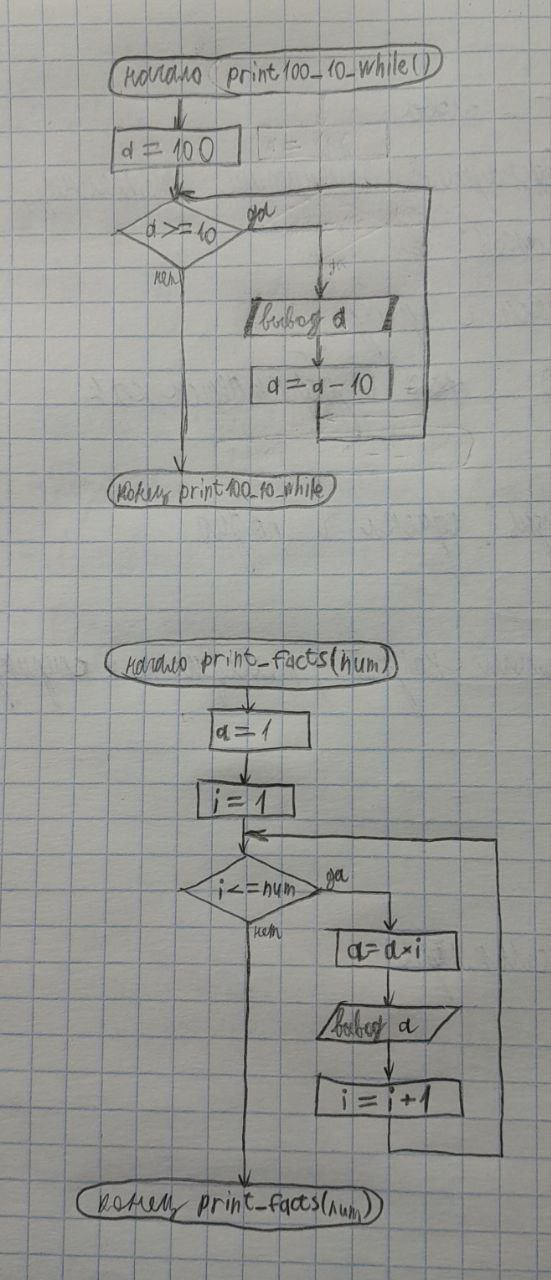 начало print100_10_while()
a = 100
a >= 10
да
нет
вывод a
a = a - 10
конец print100_10_while
начало print_facts(num)
a = 1
i = 1
i <= num
да
нет
a = a * i
вывод a
i = i + 1
конец print_facts(num)